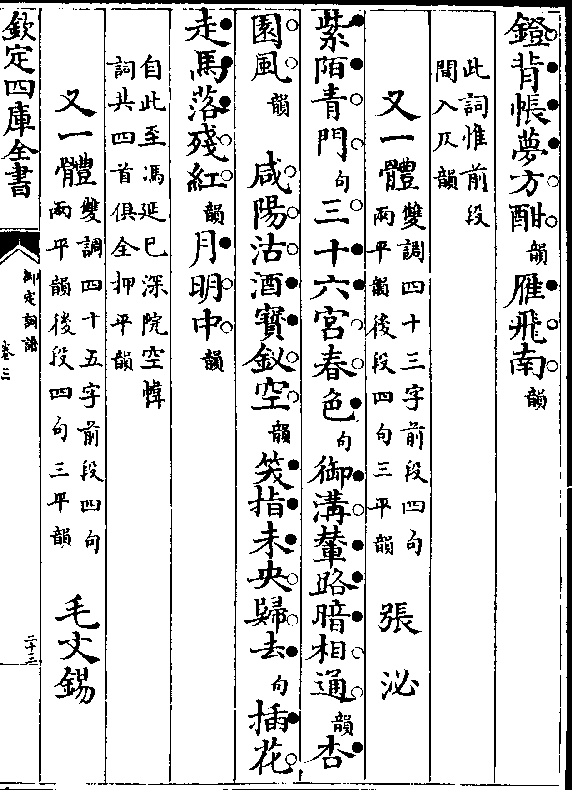 鐙背帳夢方酣韻雁飛南韻
此詞惟前段
間入仄韻
又一體雙調四十三字前段四句
兩平韻後段四句三平韻張泌
紫陌青門句三十六宮春色句御溝輦路暗相通韻杏
園風韻咸陽沽酒寶釵空韻笑指未央歸去句插花
走馬落殘紅韻月明中韻
自此至馮延巳深院空幃
詞共四首俱全押平韻
又一體雙調四十五字前段四句
兩平韻後段四句三平韻毛文錫
欽定四庫全書
御定詞譜
卷三
二十三